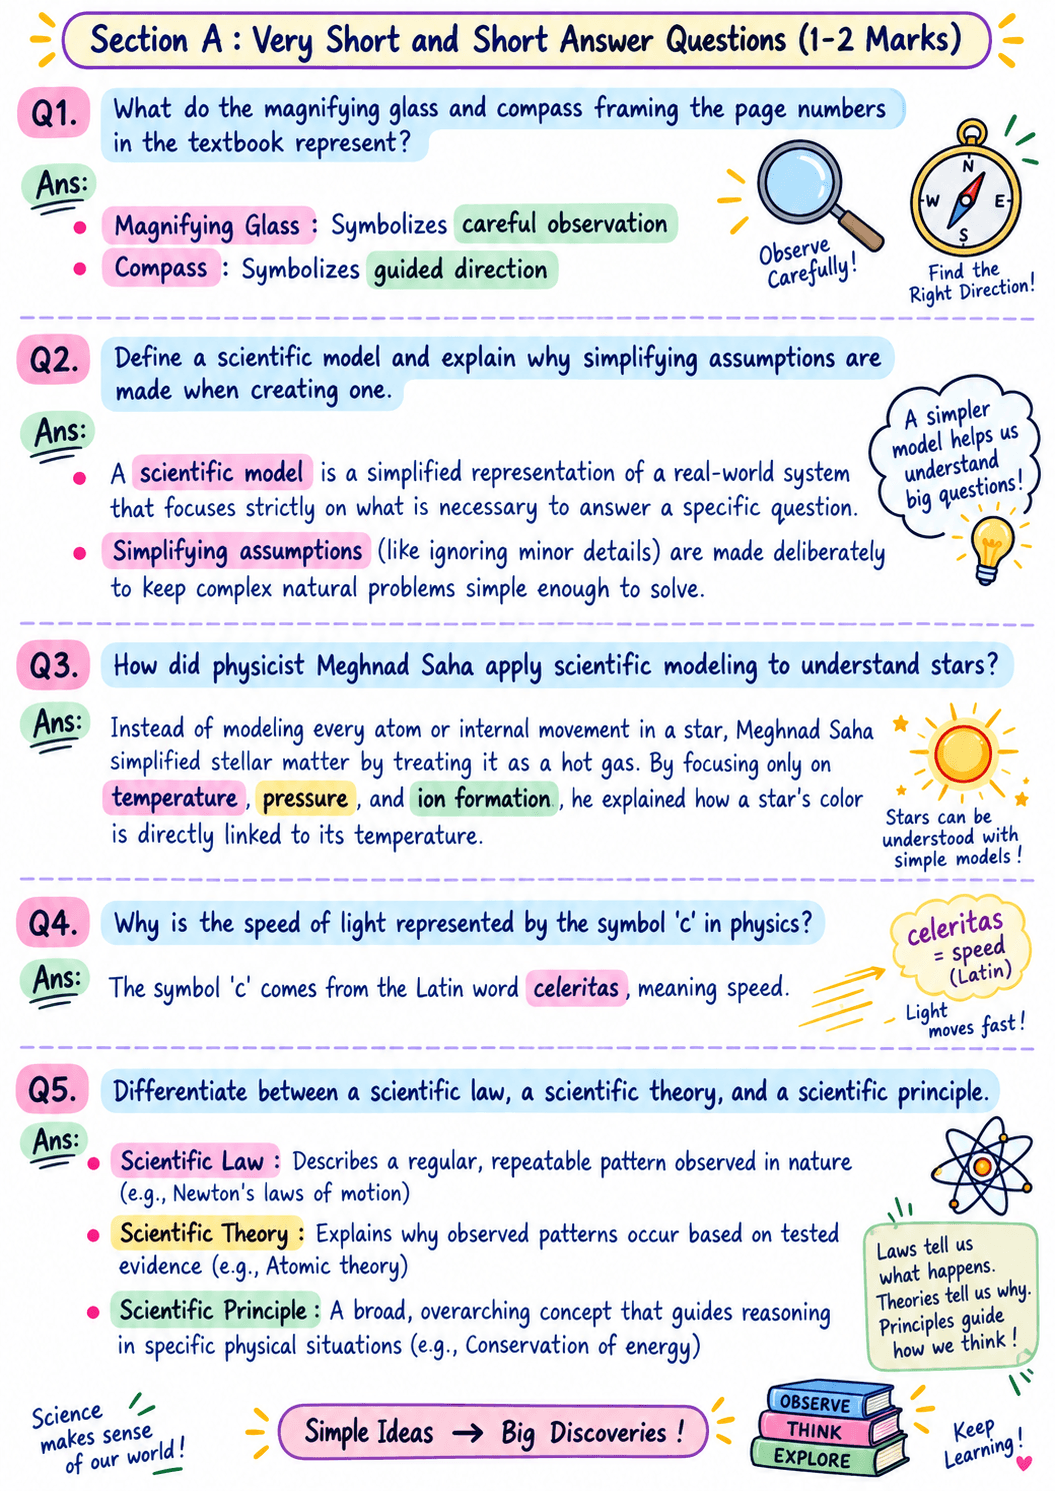 Section A : Very Short and Short Answer Questions (1-2 Marks)
Q1.
What do the magnifying glass and compass framing the page numbers
in the textbook represent?
Ans:
Magnifying Glass : Symbolizes careful observation
Compass : Symbolizes guided direction
Observe
Carefully!
N
W
E
S
Find the
Right Direction!
Q2.
Define a scientific model and explain why simplifying assumptions are
made when creating one.
Ans:
A scientific model is a simplified representation of a real-world system
that focuses strictly on what is necessary to answer a specific question.
Simplifying assumptions (like ignoring minor details) are made deliberately
to keep complex natural problems simple enough to solve.
A simpler
model helps us
understand
big questions!
Q3.
How did physicist Meghnad Saha apply scientific modeling to understand stars?
Ans:
Instead of modeling every atom or internal movement in a star, Meghnad Saha
simplified stellar matter by treating it as a hot gas. By focusing only on
temperature, pressure, and ion formation., he explained how a star's color
is directly linked to its temperature.
Stars can be
understood with
simple models!
Q4.
Why is the speed of light represented by the symbol 'c' in physics?
Ans:
The symbol 'c' comes from the Latin word celeritas, meaning speed.
celeritas
= speed
(Latin)
Light
moves fast!
Q5.
Differentiate between a scientific law, a scientific theory, and a scientific principle.
Ans:
Scientific Law : Describes a regular, repeatable pattern observed in nature
(e.g., Newton's laws of motion)
Scientific Theory : Explains why observed patterns occur based on tested
evidence (e.g., Atomic theory)
Scientific Principle : A broad, overarching concept that guides reasoning
in specific physical situations (e.g., Conservation of energy)
Laws tell us
what happens.
Theories tell us why.
Principles guide
how we think!
Science
makes sense
of our world!
Simple Ideas → Big Discoveries!
OBSERVE
THINK
EXPLORE
Keep
Learning!